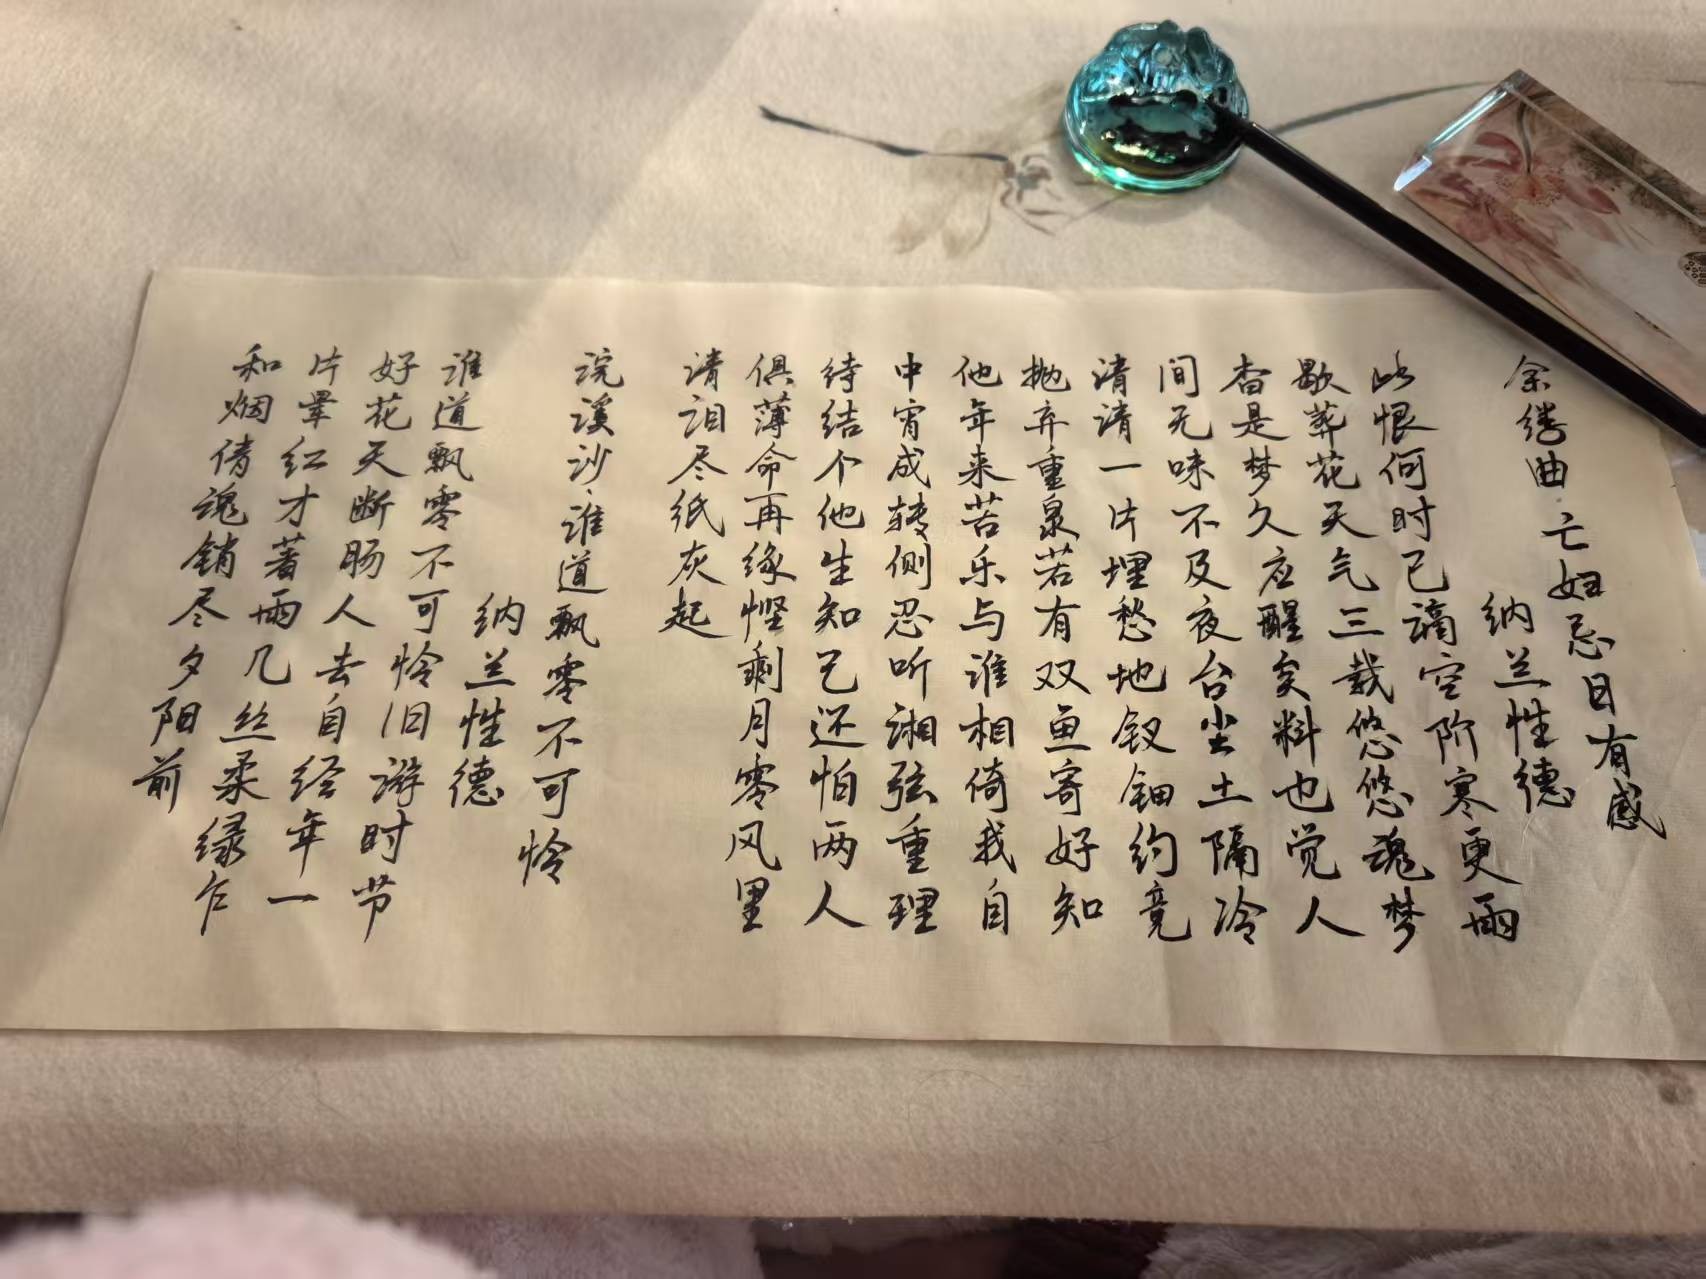 金缕曲·亡妇忌日有感
纳兰性德
此恨何时已滴空阶寒更雨
歇葬花天气三载悠悠魂梦
杳是梦久应醒矣料也觉人
间无味不及夜台尘土隔冷
清清一片埋愁地钗钿约竟
抛弃重泉若有双鱼寄好知
他年来苦乐与谁相倚我自
中宵成转侧忍听湘弦重理
待结个他生知己还怕两人
俱薄命再缘悭剩月零风里
清泪尽纸灰起
浣溪沙·谁道飘零不可怜
纳兰性德
谁道飘零不可怜旧游时节
好花天断肠人去自经年一
片晕红才著雨几丝柔绿乍
和烟倩魂销尽夕阳前